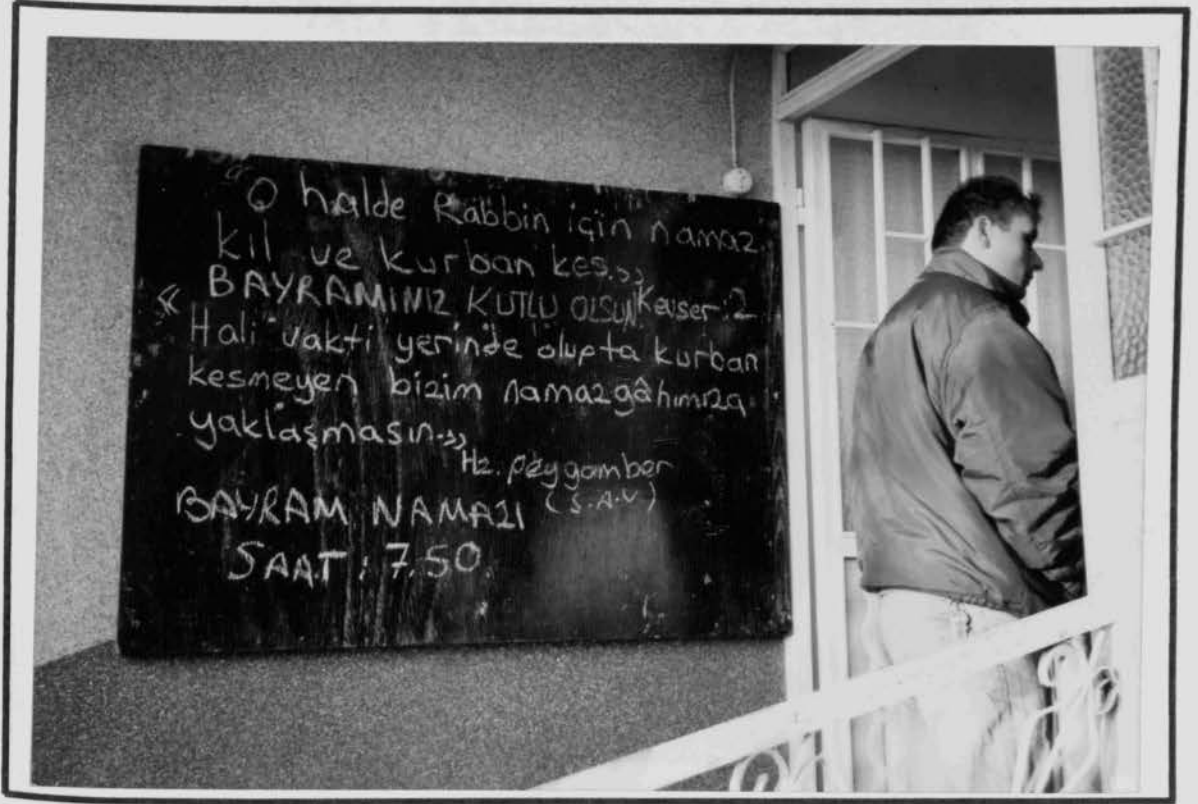 "O halde Rabbin için namaz
kıl ve kurban kes.»
BAYRAMINIZ KUTLU OLSUN Kevser:2
« Hali vakti yerinde olupta kurban
kesmeyen bizim namazgâhımıza
yaklaşmasın.»
Hz. peygamber
(S.A.V)
BAYRAM NAMAZI
SAAT : 7.50.